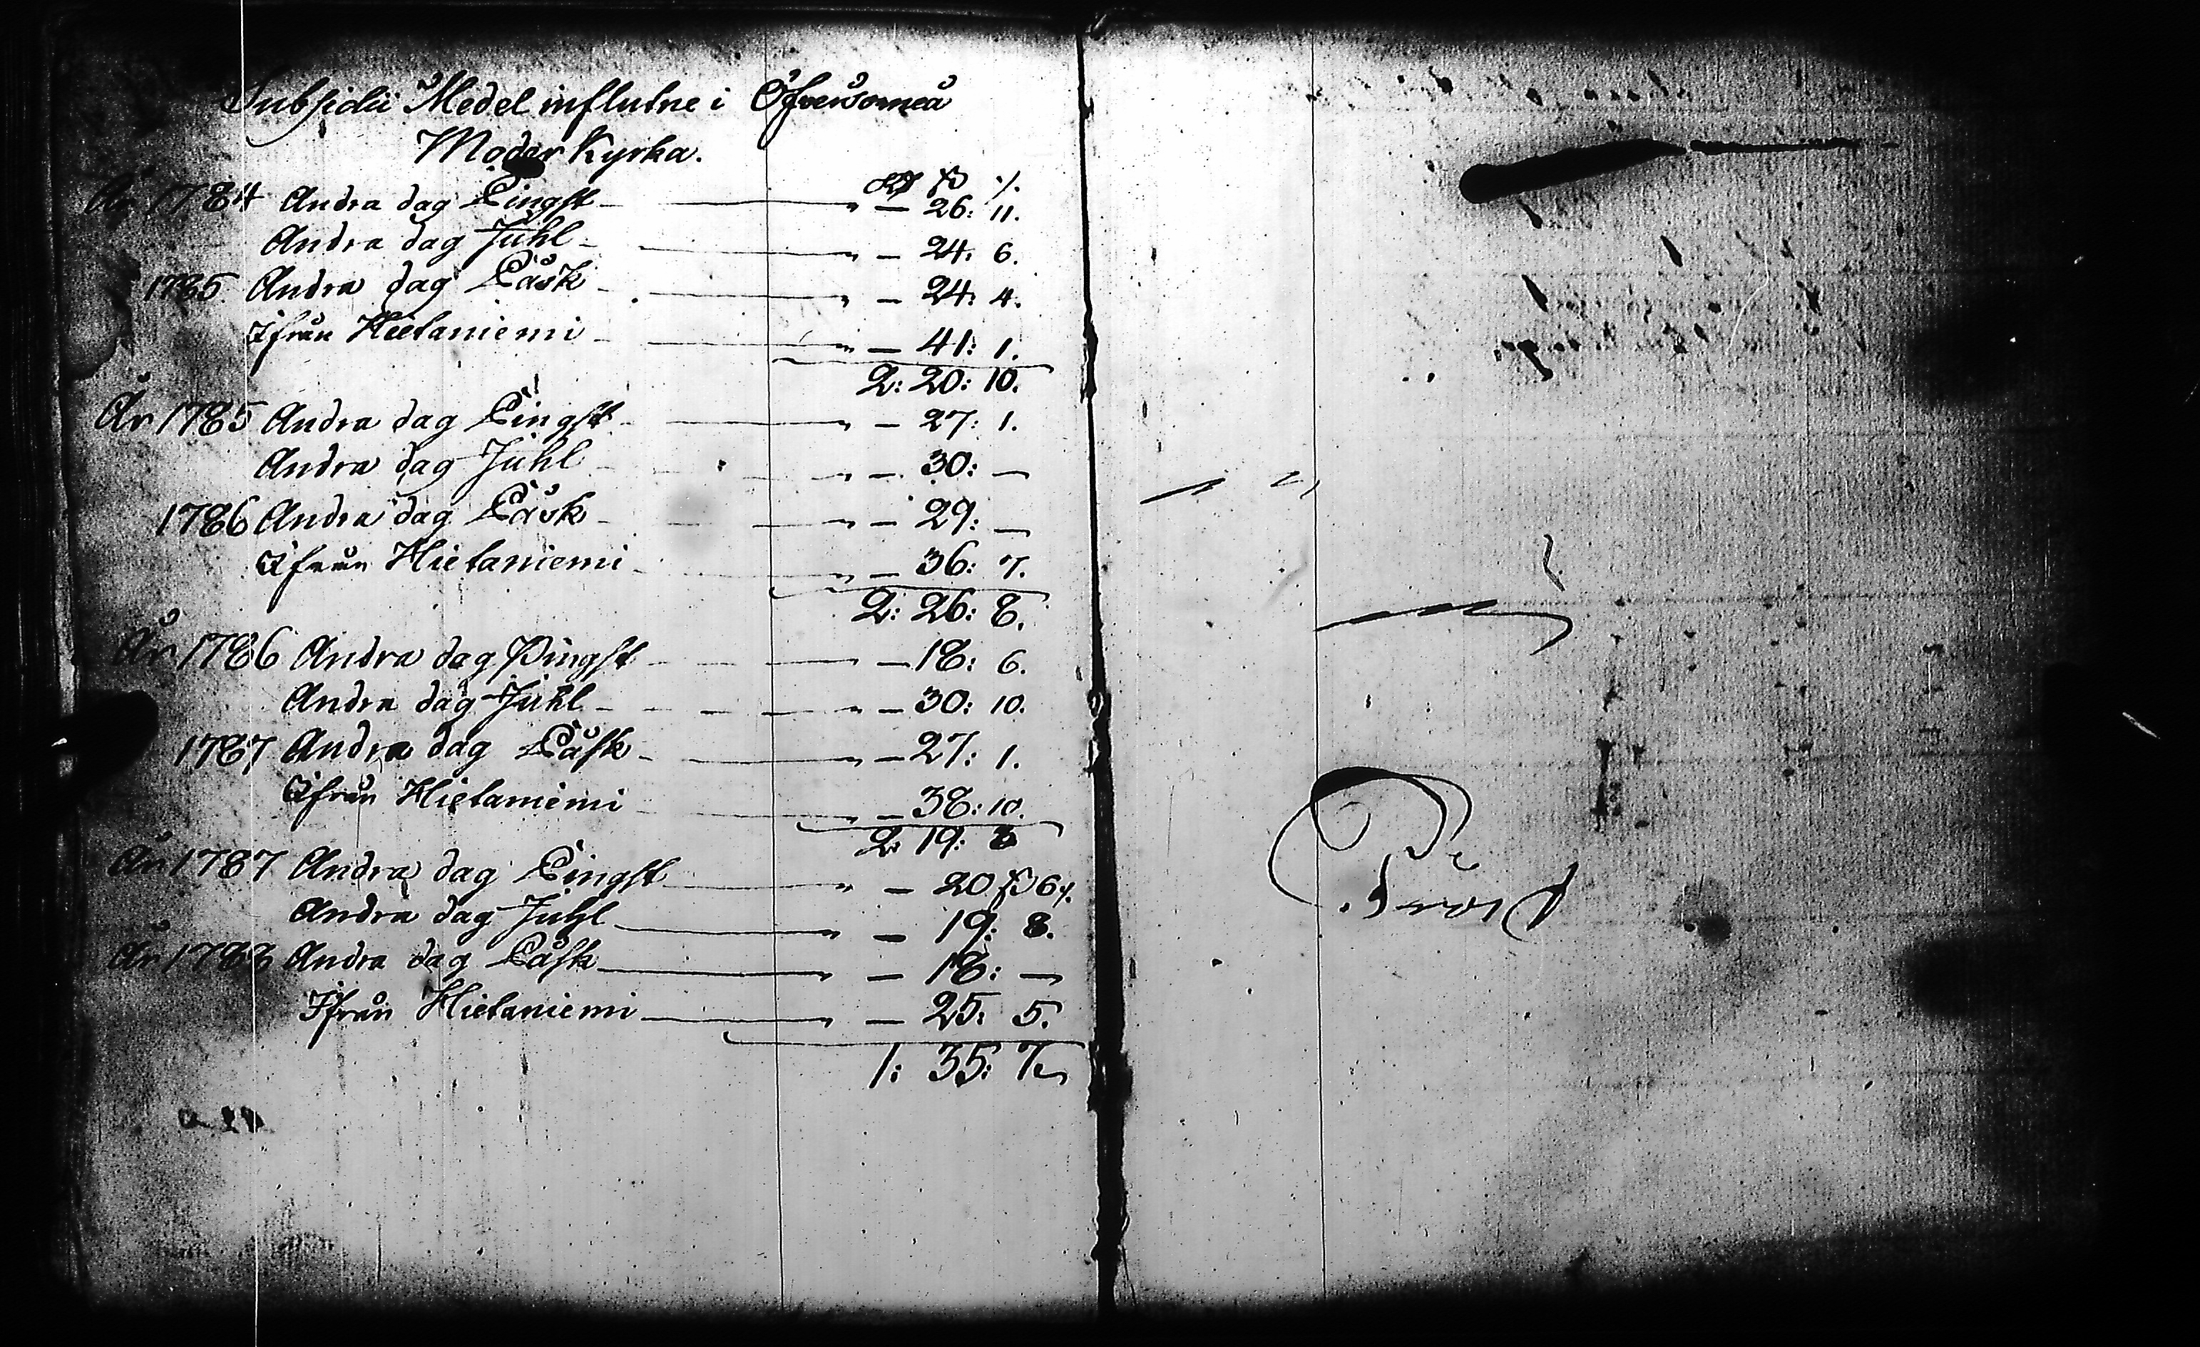 Subsidii Medel influtne i Öfvertorneå
Moder Kyrka.
Rd ß /.
År 1784 Andra dag Pingst — „ — 26: 11.
Andra dag Juhl — „ — 24: 6.
1785 Andra dag Påsk — „ — 24: 4.
Ifrån Hietaniemi — „ — 41: 1.
2: 20: 10.
År 1785 Andra dag Pingst — „ — 27: 1.
Andra dag Juhl — „ — 30: —
1786 Andra dag Påsk — „ — 29: —
Ifrån Hietaniemi — „ — 36: 7.
2: 26: 8.
År 1786 Andra dag Pingst — „ — 18: 6.
Andra dag Juhl — „ — 30: 10.
1787 Andra dag Påsk — „ — 27: 1.
Ifrån Hietaniemi — 38: 10.
2: 19: 3
År 1787 Andra dag Pingst — „ — 20 ß 6/.
Andra dag Juhl — „ — 19: 8.
År 1788 Andra dag Påsk — „ — 18: —
Ifrån Hietaniemi — „ — 25: 5.
1: 35: 7.